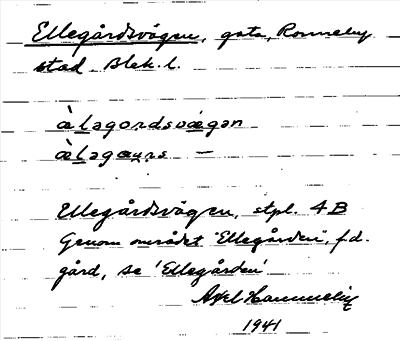 Ellegårdsvägen, gata, Ronneby
stad Blek. l.
àlagordsvægan
àlagaurs —
Ellegårdsvägen, stpl. 4 B
Genom området 'Ellegården', f.d.
gård, se 'Ellegården'
Axel Hammelin
1941